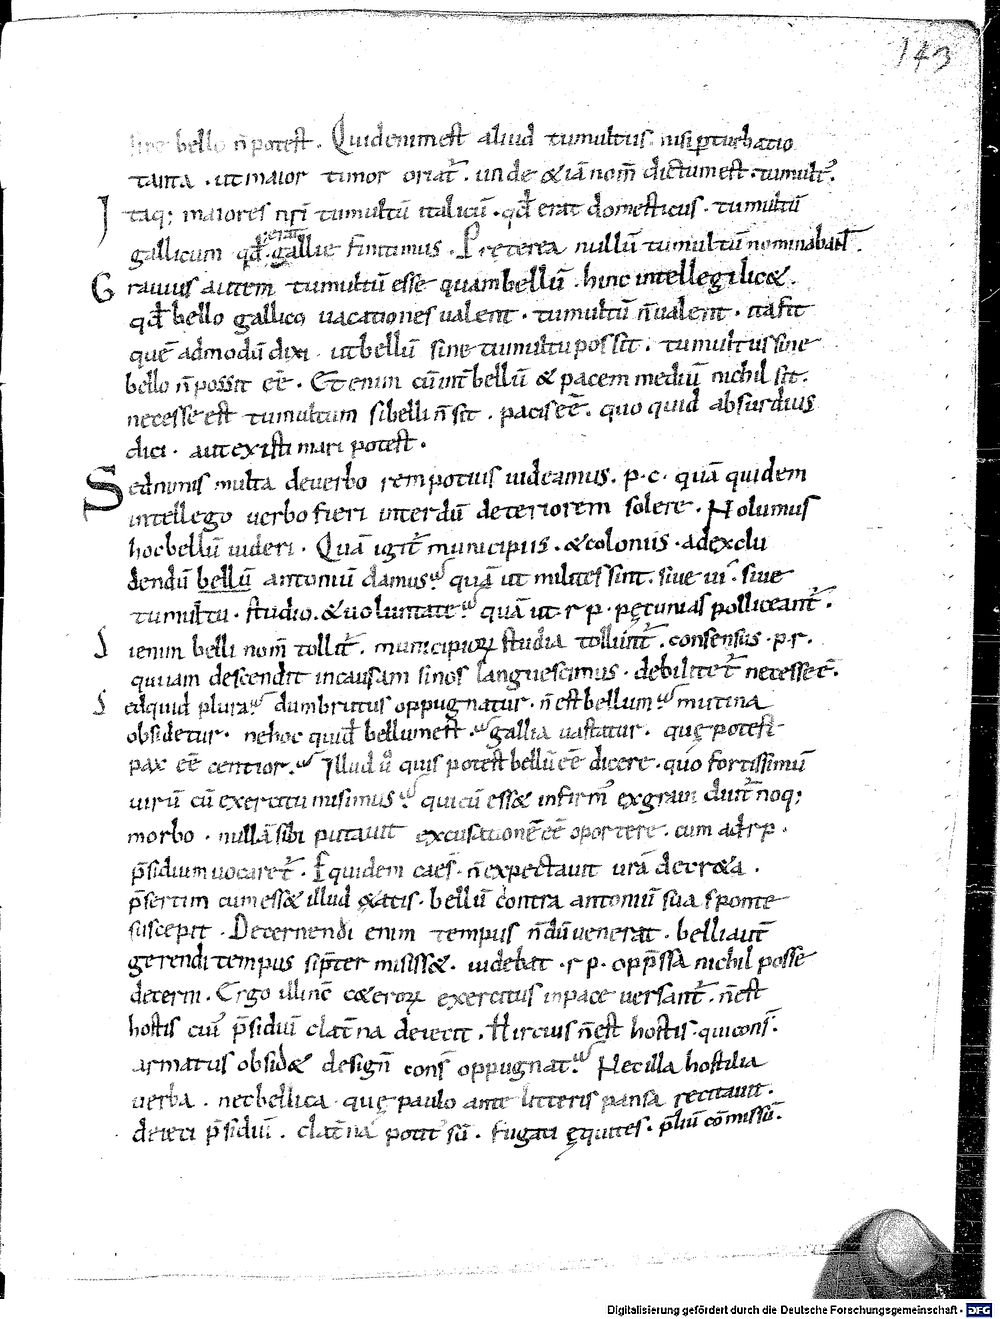 143
sine bello n̄ potest. Quid enim est aliud tumultus. nisi ꝑturbatio
tanta. ut maior timor oriat̄. unde & iā nom̄ dictum est. tumult᷒.
Itaq; maiores nr̄i tumultū italicū. qđ erat domesticus. tumultū
gallicum qđ erat gallię finitimus. Preterea nullū tumultū nominabant̄.
Grauius autem tumultū esse quam bellū. hinc intellegi lic&.
qđ bello gallico uacationes ualent. tumultū n̄ ualent. ita fit
quē admodū dixi. ut bellū sine tumultu possit. tumultus sine
bello n̄ possit eē. Etenim cū int̄ bellū & pacem mediū nichil sit.
necesse est tumultum si belli n̄ sit. pacis eē. quo quid absurdius
dici. aut existimari potest.
Sed nimis multa de uerbo rem potius uideamus. p. c. quā quidem
intellego uerbo fieri interdū deteriorem solere. Nolumus
hoc bellū uideri. Quā igit̄ municipiis. & coloniis. ad exclu
dendū bellū antoniū damus? quā ut milites sint. siue ui. siue
tumultu. studio. & uoluntate? quā ut r p. pęcunias polliceant̄.
Si enim belli nom̄ tollit̄. municipioꝝ studia tollunt̄. consensus. p. r.
qui iam descendit in causam si nos languescimus. debilitet̄ necesse ē.
Sed quid plura? dum brutus oppugnatur. n̄ est bellum? mutina
obsidetur. ne hoc quid bellum est? gallia uastatur. quę potest
pax eē certior? Illud u° quis potest bellū eē dicere. quo fortissimū
uirū cū exercitu misimus? qui cū ess& infirm᷒ ex graui diut̄noq;
morbo. nullā sibi putauit excusationē eē oportere. cum ad r p.
p̄sidium uocaret̄. Equidem caes. n̄ expectauit ur̄a decr&a.
p̄sertim cum ess& illud ętatis. bellū contra antoniū sua sponte
suscepit. Decernendi enim tempus n̄dū uenerat. belli aut̄
gerendi tempus si p̄ter misiss&. uidebat. r p. opp̄ssa nichil posse
decerni. Ergo illi nc̄ c&eroꝝ exercitus in pace uersant̄. n̄ est
hostis cui᷒ p̄sidiū clat̄na deiecit. Hircius n̄ est hostis. qui cons̄.
armatus obsid& design̄ cons̄ oppugnat? Nec illa hostilia
uerba. nec bellica. quę paulo ante litteris pansa recitauit.
deieci p̄sidiū. clat̄na potit᷒ sū. fugati ęquites. p̄liū cōmissū.
Digitalisierung gefördert durch die Deutsche Forschungsgemeinschaft - DFG